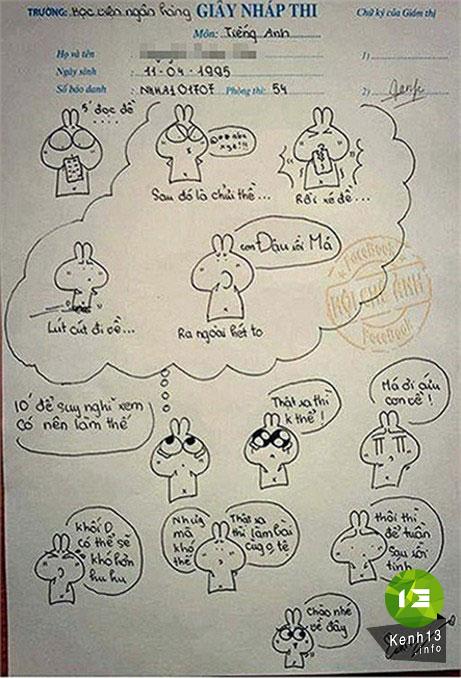 TRƯỜNG: Học viện ngân hàng GIẤY NHÁP THI
Chữ ký của Giám thị
Môn: Tiếng Anh
Họ và tên
1)
Ngày sinh 11-04-1995
Số báo danh NHHA101707 Phòng thi: 54
2)
5' đọc đề
....
Sau đó là chửi thề...
Rồi xé đề...
Lút cút đi về...
con Đậu rồi Má
Ra ngoài hét to
FaceBook
HỘI CHẾ ẢNH
FaceBook
10' để suy nghĩ xem
có nên làm thế
Thật ra thì
k thể!
Má ơi cứu
con về!
khối D
có thể sẽ
khó hơn
hu hu
Nhưng
mà
khó
thế
Thật ra
thì làm bài
cug o tệ
thôi thì
để tuần
sau rồi
tính
Chào nhé
về đây
Kenh13
.info